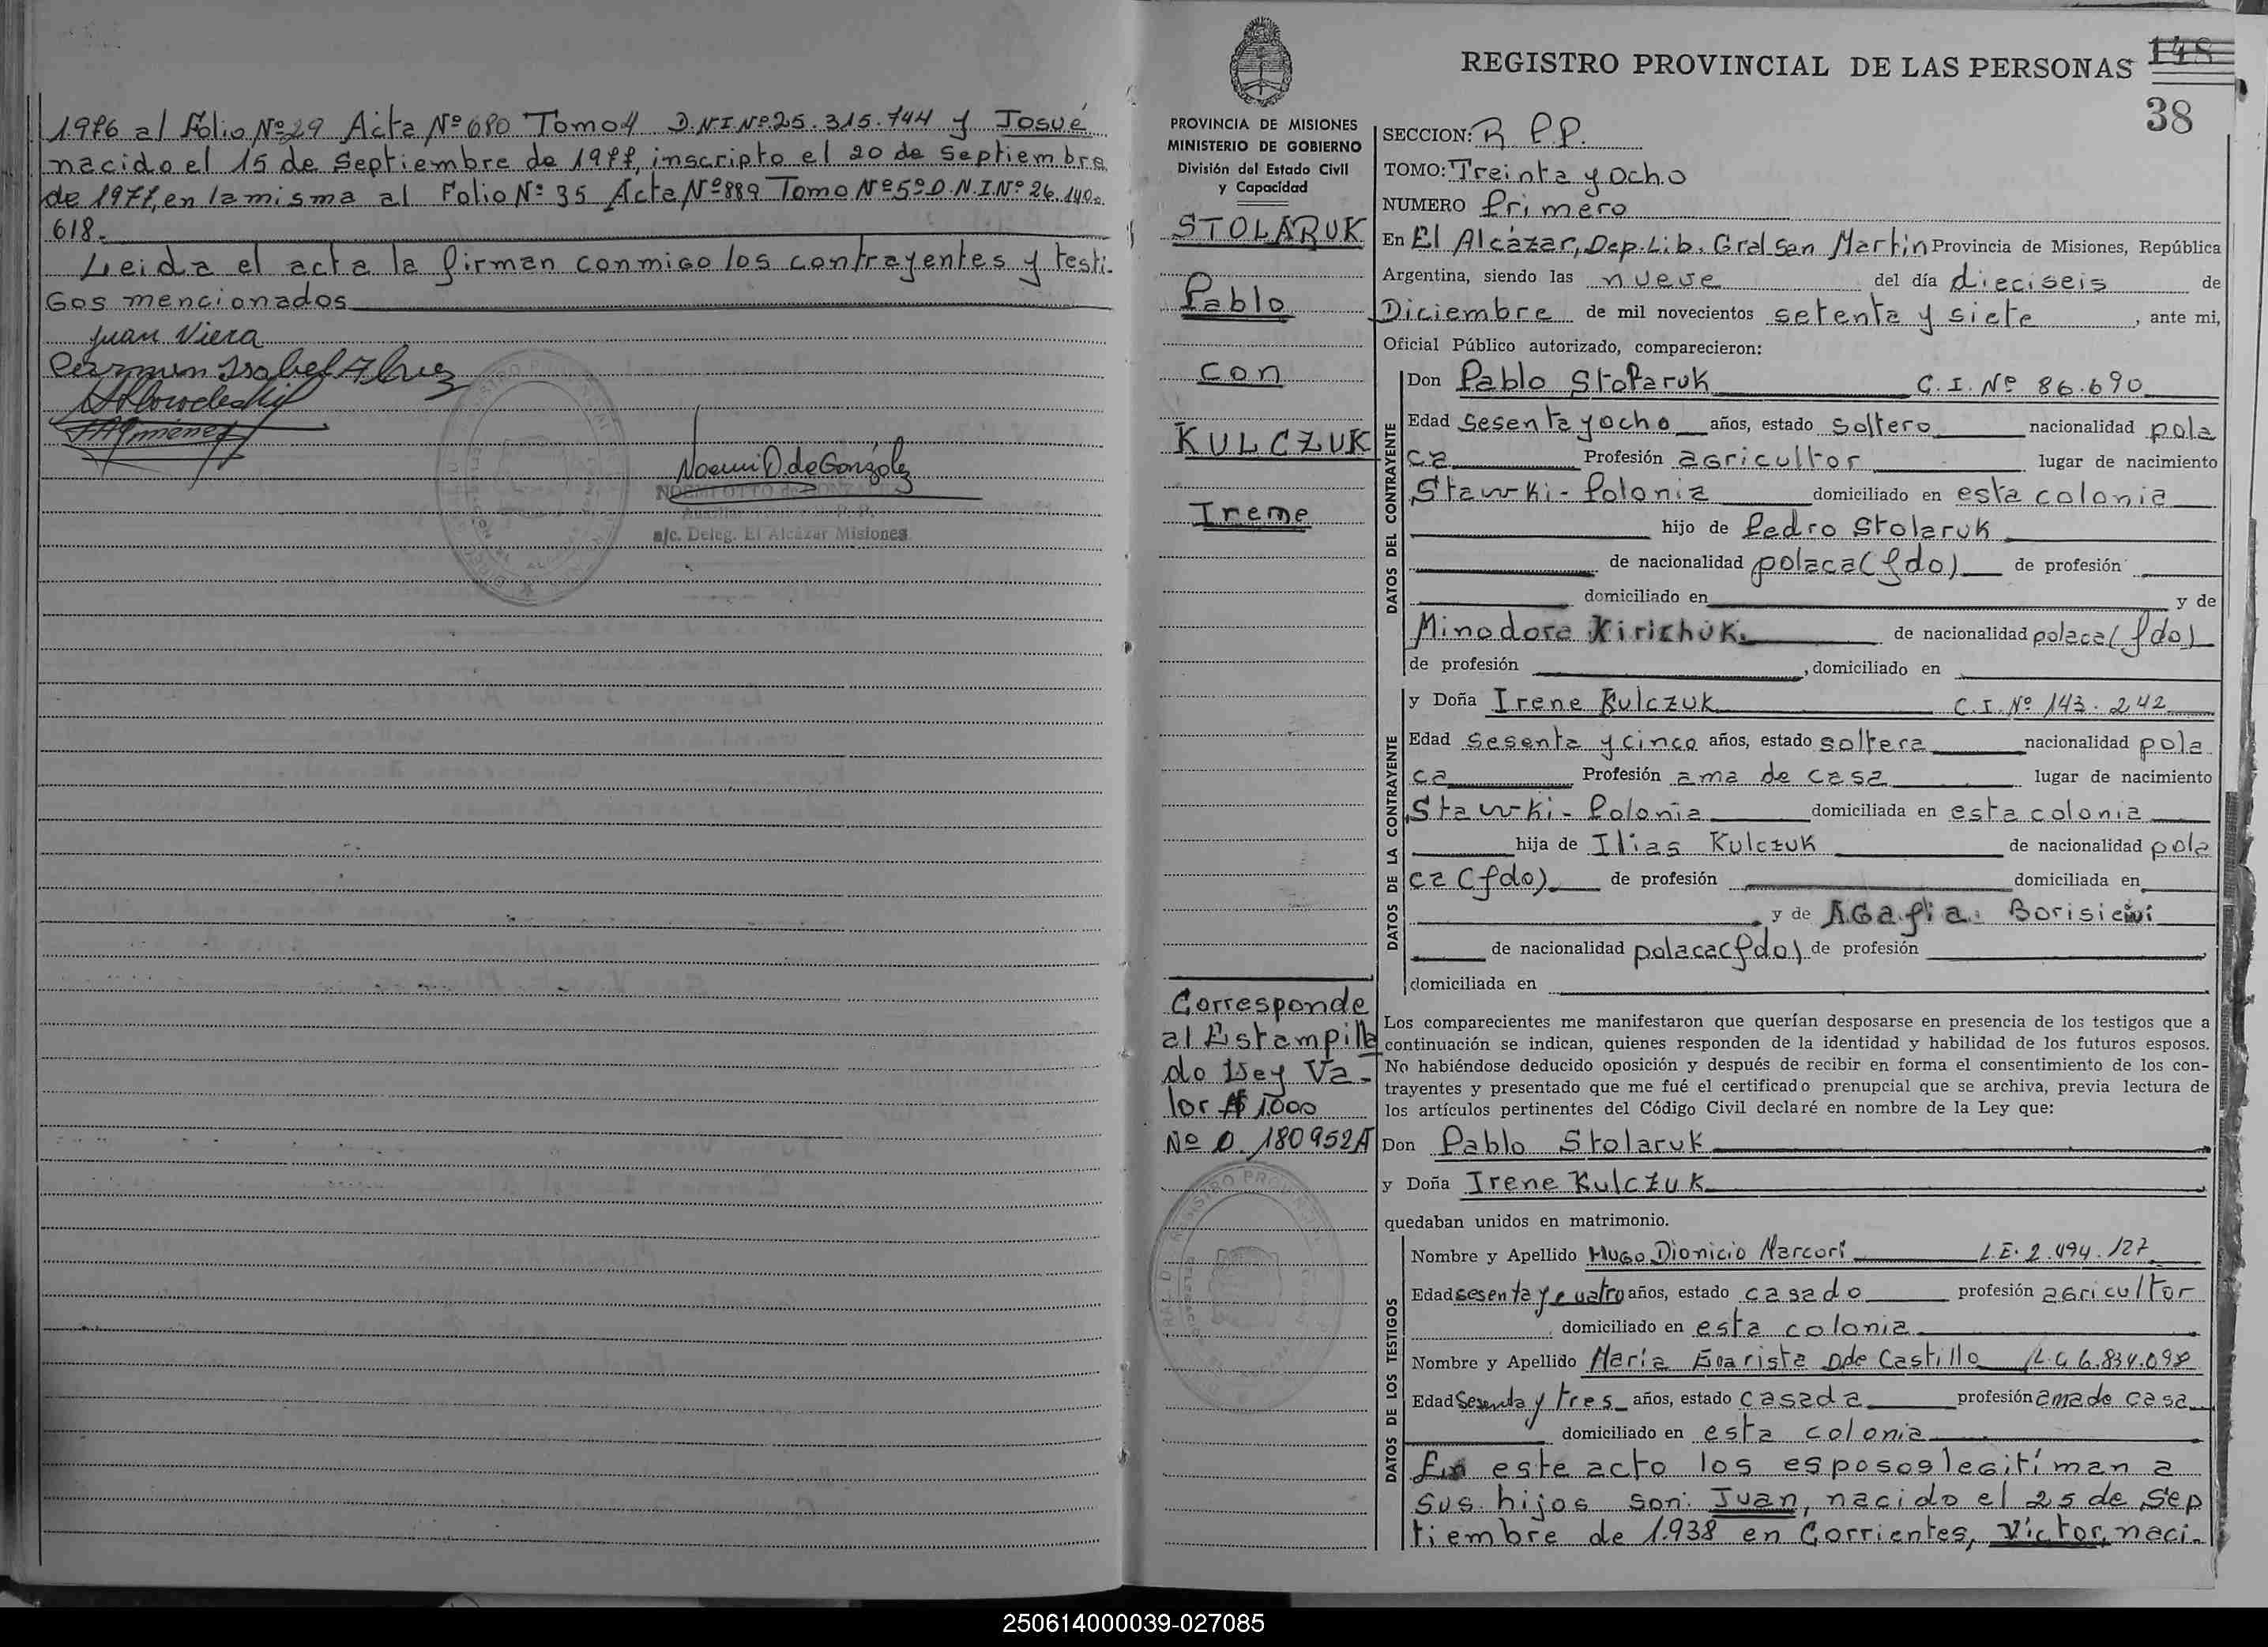 1976 al Folio Nº29 Acta Nº680 Tomo4 D.N.I Nº25.315.744 y Josué
nacido el 15 de Septiembre de 1977, inscripto el 20 de Septiembre
de 1977, en la misma al Folio Nº 35 Acta Nº889 Tomo Nº5º D.N.I.Nº 26.140.
618.
Leida el acta la firman conmigo los contrayentes y testi-
gos mencionados
Juan Viera
Carmen Isabel
Noemi O. de González
NOEMI OTTO de GONZALEZ
a/c. Deleg. El Alcázar Misiones
REGISTRO PROVINCIAL DE LAS PERSONAS
148
38
PROVINCIA DE MISIONES
MINISTERIO DE GOBIERNO
División del Estado Civil
y Capacidad
STOLARUK
Pablo
con
KULCZUK
Irene
Corresponde
al Estampilla
do Ley Va-
lor $ 1000
Nº 0.180952A
SECCION: R P.P.
TOMO: Treinta y ocho
NUMERO Primero
En El Alcázar, Dep. Lib. Gral San Martin Provincia de Misiones, República
Argentina, siendo las nueve del día dieciseis de
Diciembre de mil novecientos setenta y siete, ante mi,
Oficial Público autorizado, comparecieron:
DATOS DEL CONTRAYENTE
Don Pablo Stolaruk C.I. Nº 86.690
Edad sesenta y ocho años, estado soltero nacionalidad pola
ca Profesión agricultor lugar de nacimiento
Stawki - Polonia domiciliado en esta colonia
hijo de Pedro Stolaruk
de nacionalidad polaca (fdo) de profesión
domiciliado en y de
Minodora Kirichuk de nacionalidad polaca (fdo)
de profesión , domiciliado en
DATOS DE LA CONTRAYENTE
y Doña Irene Kulczuk C.I. Nº 143.242
Edad sesenta y cinco años, estado soltera nacionalidad pola
ca Profesión ama de casa lugar de nacimiento
Stawki - Polonia domiciliada en esta colonia
hija de Ilias Kulczuk de nacionalidad pola
ca (fdo) de profesión domiciliada en
y de Agafia
de nacionalidad polaca (fdo) de profesión
domiciliada en
Los comparecientes me manifestaron que querían desposarse en presencia de los testigos que a
continuación se indican, quienes responden de la identidad y habilidad de los futuros esposos.
No habiéndose deducido oposición y después de recibir en forma el consentimiento de los con-
trayentes y presentado que me fué el certificado prenupcial que se archiva, previa lectura de
los artículos pertinentes del Código Civil declaré en nombre de la Ley que:
Don Pablo Stolaruk
y Doña Irene Kulczuk
quedaban unidos en matrimonio.
DATOS DE LOS TESTIGOS
Nombre y Apellido Hugo Dionicio Marcori L.E. 2.494.127
Edad sesenta y cuatro años, estado casado profesión agricultor
domiciliado en esta colonia
Nombre y Apellido María Evarista D de Castillo L.C 6.834.098
Edad Sesenta y tres años, estado casada profesión ama de casa
domiciliado en esta colonia
En este acto los esposos legitíman a
sus hijos son: Juan, nacido el 25 de Sep
tiembre de 1.938 en Corrientes, Víctor, naci-
250614000039-027085